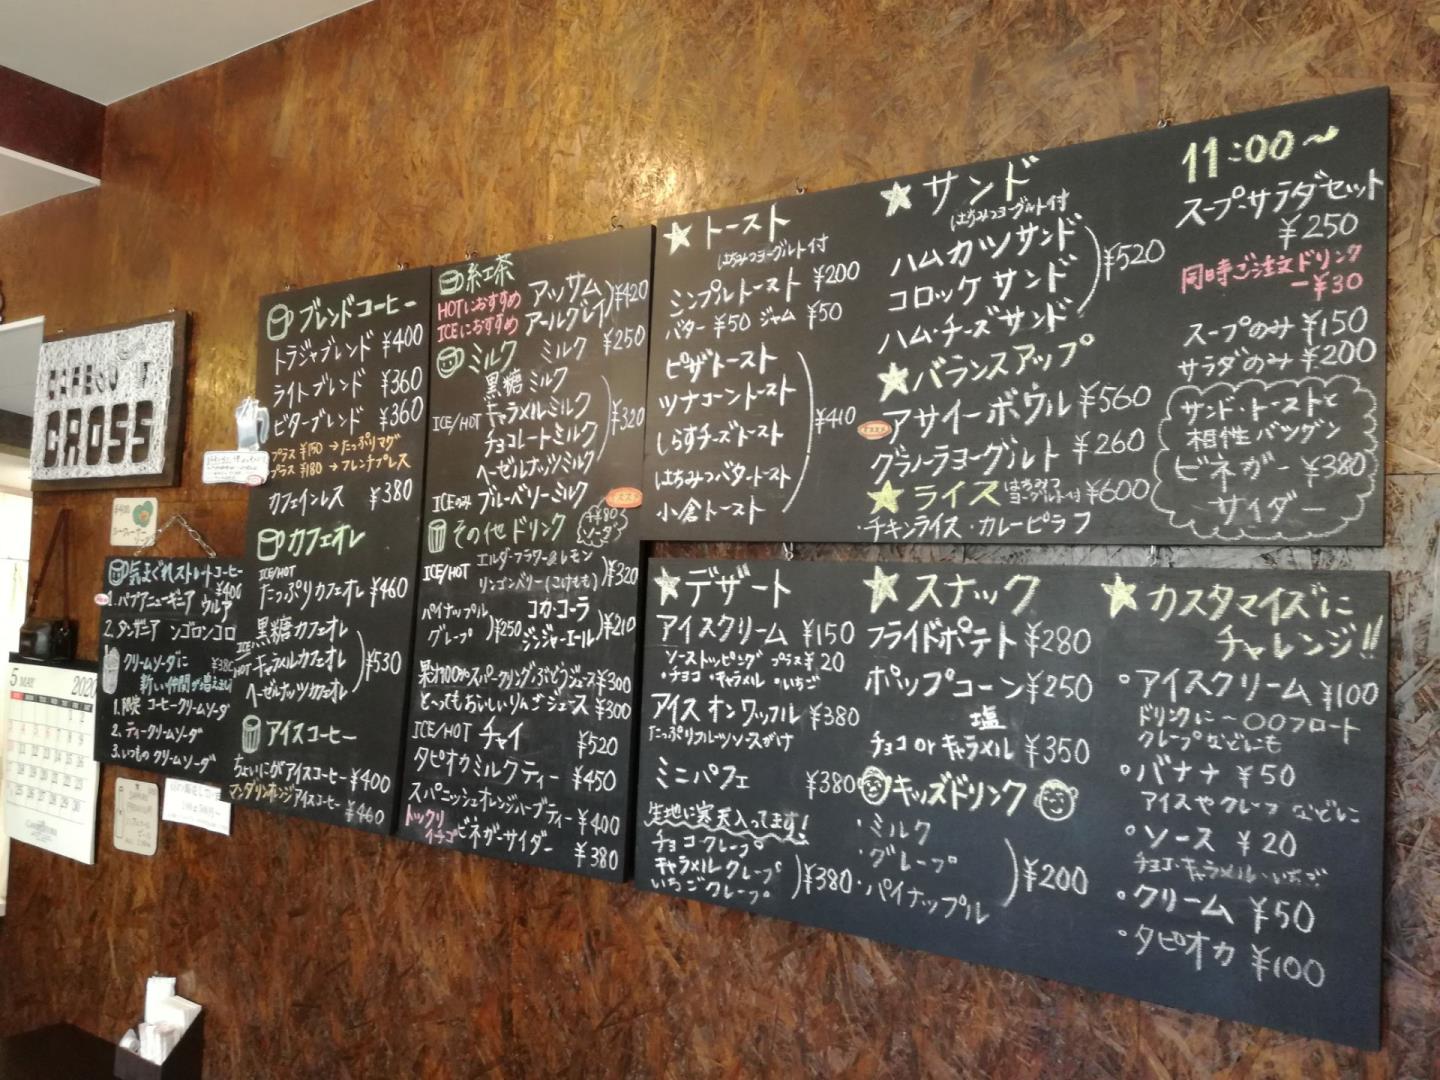 CROSS
5 MAY 2020
気まぐれストレートコーヒー
¥400
1. パプアニューギニア ウルア
2. タンザニア ンゴロンゴロ
クリームソーダに ¥380
新しい仲間が増えました
1. 限定 コーヒークリームソーダ
2. ティークリームソーダ
3. いつもの クリームソーダ
ブレンドコーヒー
トラジャブレンド ¥400
ライトブレンド ¥360
ビターブレンド ¥360
プラス ¥150 → たっぷりマグ
プラス ¥180 → フレンチプレス
カフェインレス ¥380
カフェオレ
ICE/HOT
たっぷりカフェオレ ¥460
黒糖カフェオレ
ICE/HOT キャラメルカフェオレ ¥530
ヘーゼルナッツカフェオレ
アイスコーヒー
ちょいにがアイスコーヒー ¥400
マンダリンオレンジアイスコーヒー
¥460
紅茶
HOTにおすすめ アッサム ¥420
ICEにおすすめ アールグレイ
ミルク ミルク ¥250
黒糖ミルク
ICE/HOT キャラメルミルク ¥320
チョコレートミルク
ヘーゼルナッツミルク
ICEのみ ブルーベリーミルク
その他ドリンク
+¥80 ソーダ
ICE/HOT エルダーフラワー&レモン ¥320
リンゴンベリー(こけもも)
パイナップル ¥250 コカ・コーラ ¥210
グレープ ジンジャーエール
果汁100%スパークリングぶどうジュース ¥300
とってもおいしいりんごジュース ¥300
ICE/HOT チャイ ¥520
タピオカミルクティー ¥450
スパニッシュオレンジハーブティー ¥400
トックリイチゴビネガーサイダー ¥380
★トースト
はちみつヨーグルト付
シンプルトースト ¥200
バター ¥50 ジャム ¥50
ピザトースト
ツナコーントースト
しらすチーズトースト ¥410
はちみつバタートースト
小倉トースト
★サンド
はちみつヨーグルト付
ハムカツサンド
コロッケサンド ¥520
ハム・チーズサンド
★バランスアップ
アサイーボウル ¥560
グラノーラヨーグルト ¥260
★ライス はちみつヨーグルト付 ¥600
・チキンライス・カレーピラフ
11:00〜
スープ・サラダセット
¥250
同時ご注文ドリンク
ー¥30
スープのみ ¥150
サラダのみ ¥200
サンド・トーストと
相性バツグン
ビネガー ¥380
サイダー
★デザート
アイスクリーム ¥150
ソーストッピング プラス¥20
・チョコ・キャラメル・いちご
アイスオンワッフル ¥380
たっぷりフルーツソースがけ
ミニパフェ ¥380
生地に寒天入ってます!
チョコクレープ
キャラメルクレープ ¥380
いちごクレープ
★スナック
フライドポテト ¥280
ポップコーン ¥250
塩
チョコ or キャラメル ¥350
キッズドリンク
・ミルク
・グレープ ¥200
・パイナップル
★カスタマイズに
チャレンジ!!
アイスクリーム ¥100
ドリンクに〜〇〇フロート
クレープなどにも
バナナ ¥50
アイスやクレープなどに
ソース ¥20
チョコ・キャラメル・いちご
クリーム ¥50
タピオカ ¥100